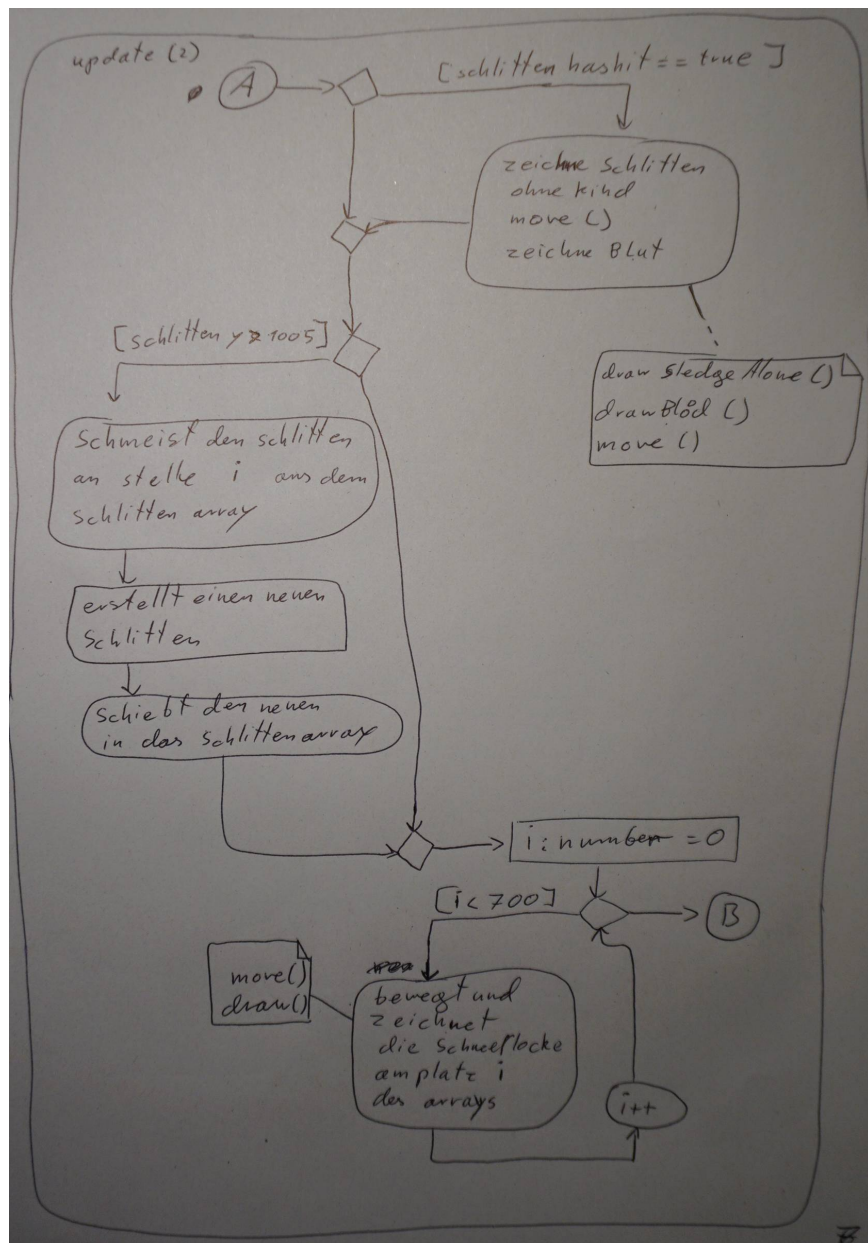 update (2)
A
[schlitten hashit == true ]
zeichne Schlitten
ohne kind
move ()
zeichne Blut
[schlitten y ≥ 1005]
draw sledge Alone ()
drawBlod ()
move ()
Schmeist den schlitten
an stelle i aus dem
schlitten array
erstellt einen neuen
Schlitten
schiebt den neuen
in das Schlittenarray
i : number = 0
[i < 700]
B
move()
draw()
bewegt und
zeichnet
die Schneeflocke
amplatz i
des arrays
i++